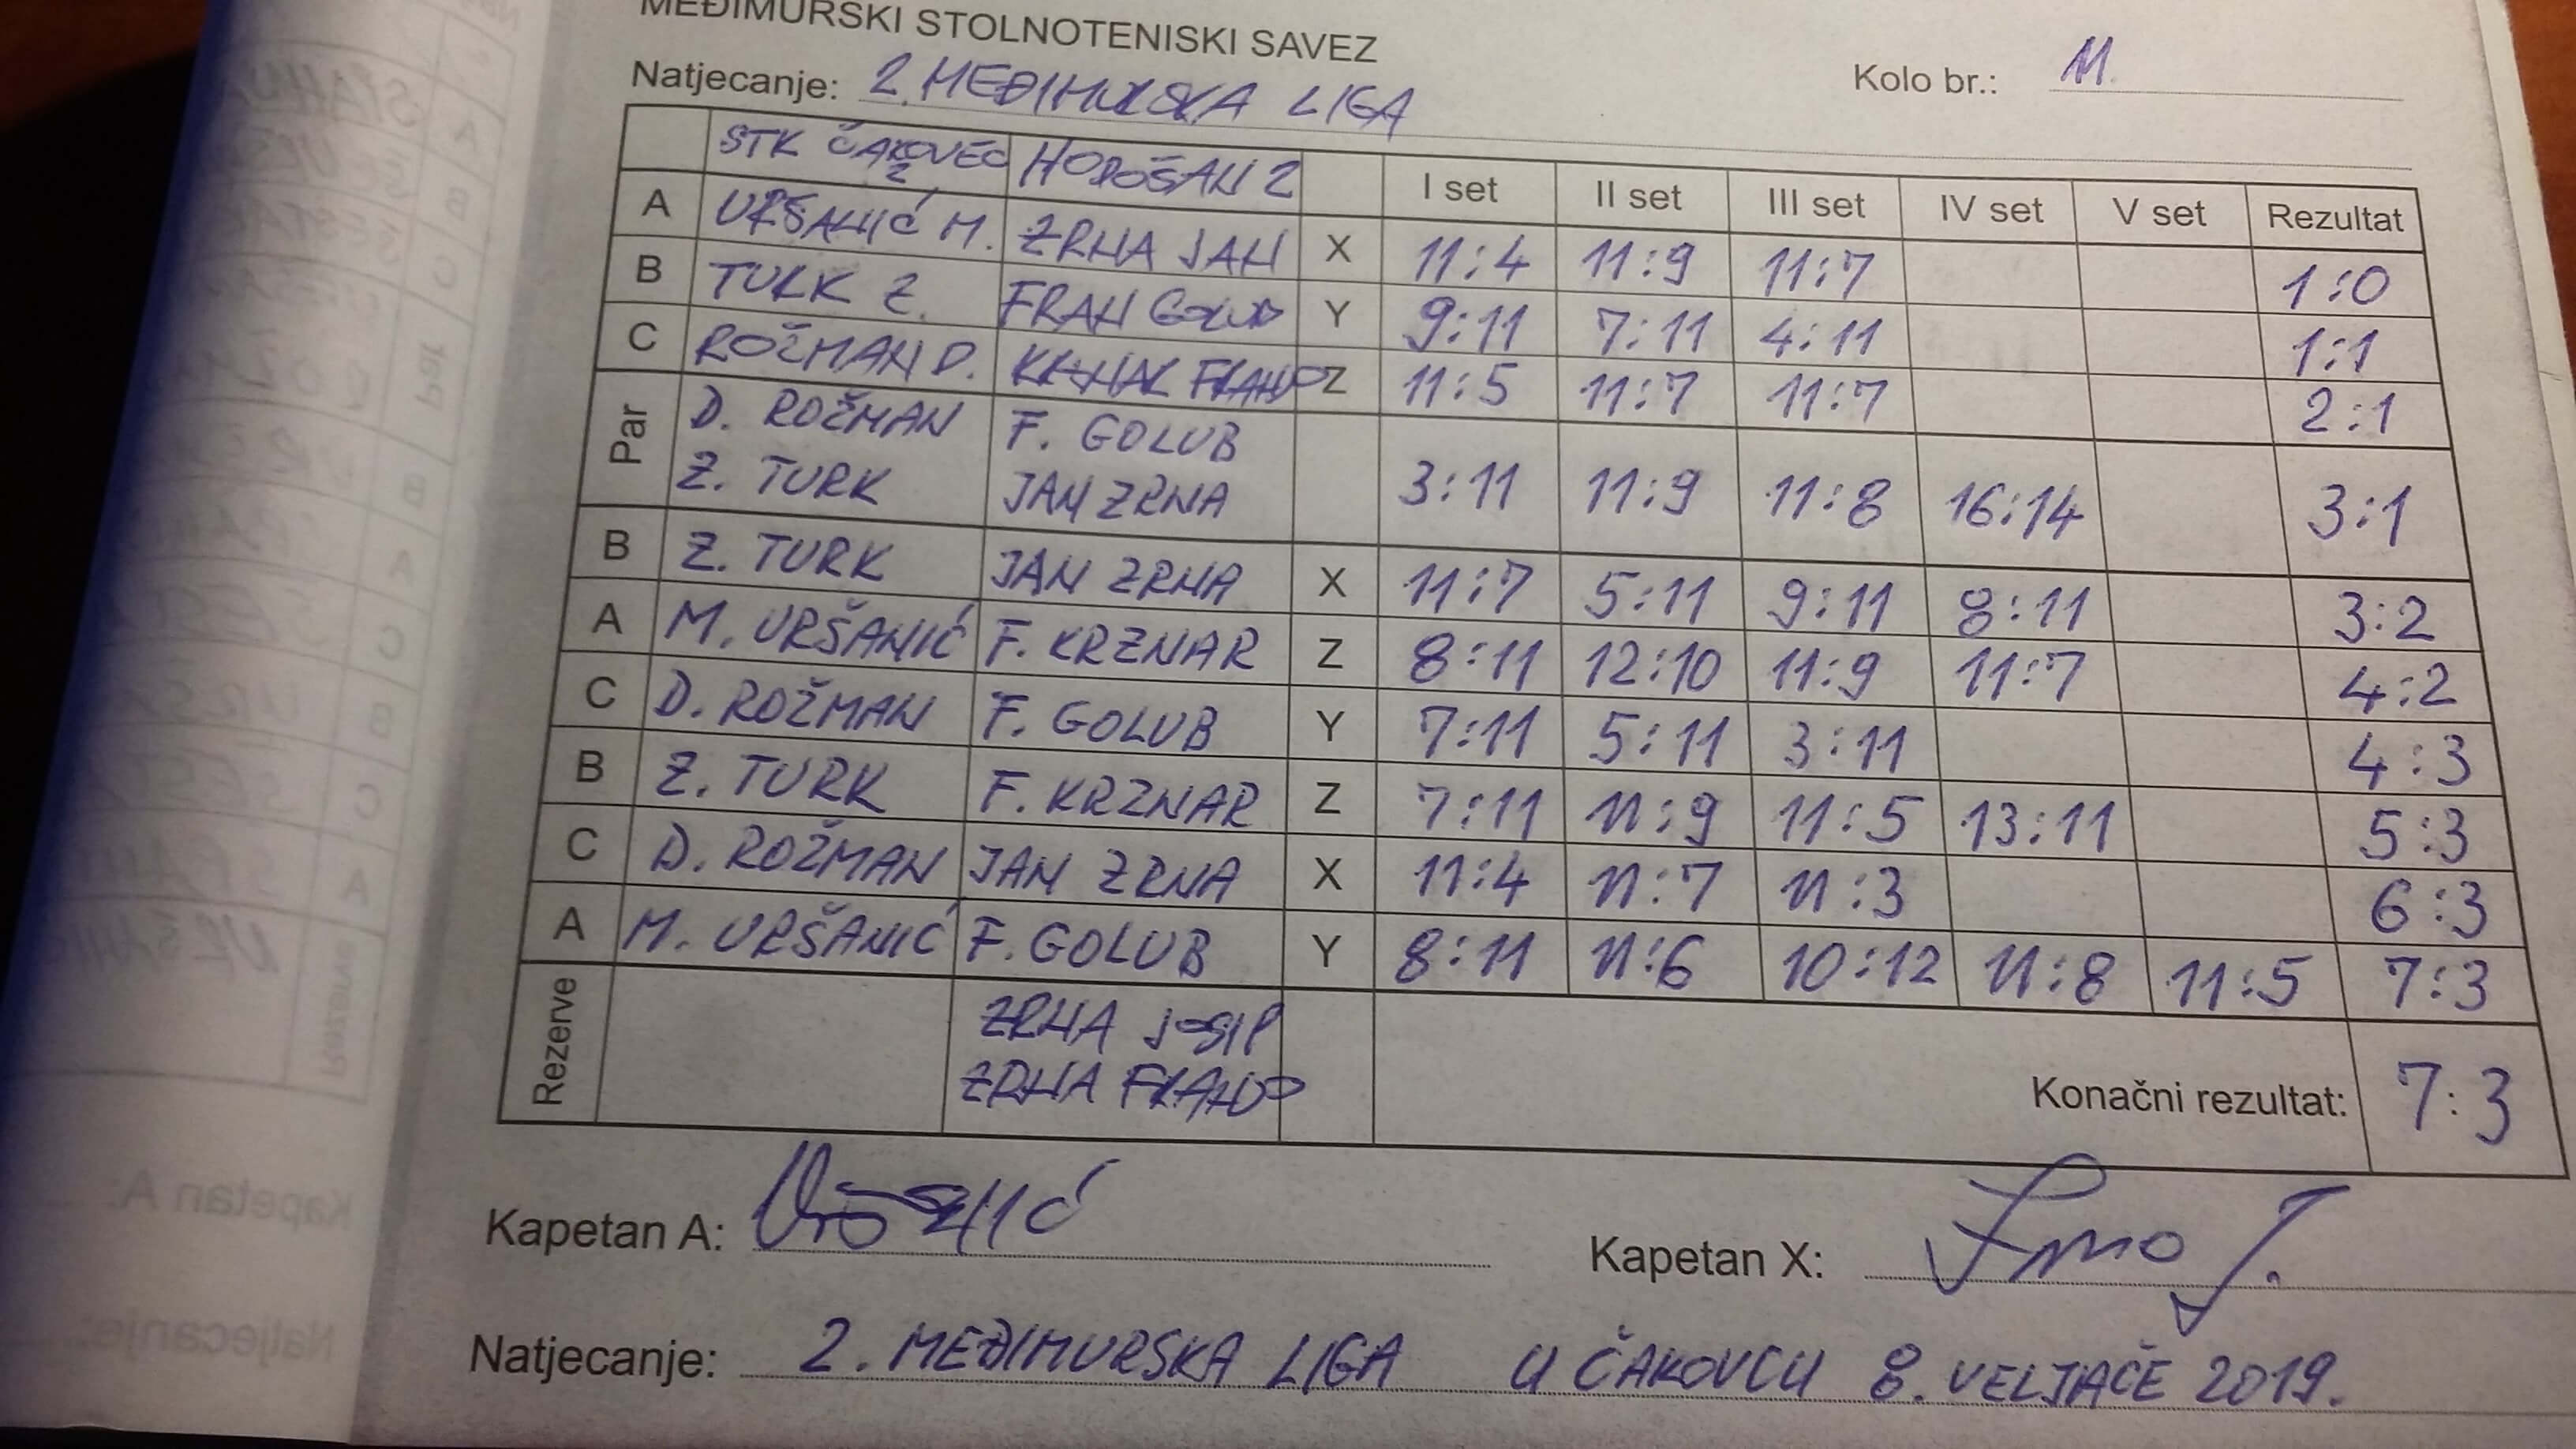 MEĐIMURSKI STOLNOTENISKI SAVEZ
Natjecanje: 2. MEĐIMURSKA LIGA Kolo br.: 11.
STK ČAKOVEC 2 HODOŠAN 2 I set II set III set IV set V set Rezultat
A URŠANIĆ M. ZRNA JAN X 11:4 11:9 11:7 1:0
B TURK Z. FRAN GOLUB Y 9:11 7:11 4:11 1:1
C ROŽMAN D. KRZNAR FRANO Z 11:5 11:7 11:7 2:1
Par D. ROŽMAN F. GOLUB
Z. TURK JAN ZRNA 3:11 11:9 11:8 16:14 3:1
B Z. TURK JAN ZRNA X 11:7 5:11 9:11 8:11 3:2
A M. URŠANIĆ F. KRZNAR Z 8:11 12:10 11:9 11:7 4:2
C D. ROŽMAN F. GOLUB Y 7:11 5:11 3:11 4:3
B Z. TURK F. KRZNAR Z 7:11 11:9 11:5 13:11 5:3
C D. ROŽMAN JAN ZRNA X 11:4 11:7 11:3 6:3
A M. URŠANIĆ F. GOLUB Y 8:11 11:6 10:12 11:8 11:5 7:3
Rezerve ZRNA JOSIP
ZRNA FRANO
Konačni rezultat: 7:3
Kapetan A: Uršanić Kapetan X:
Natjecanje: 2. MEĐIMURSKA LIGA U ČAKOVCU 8. VELJAČE 2019.